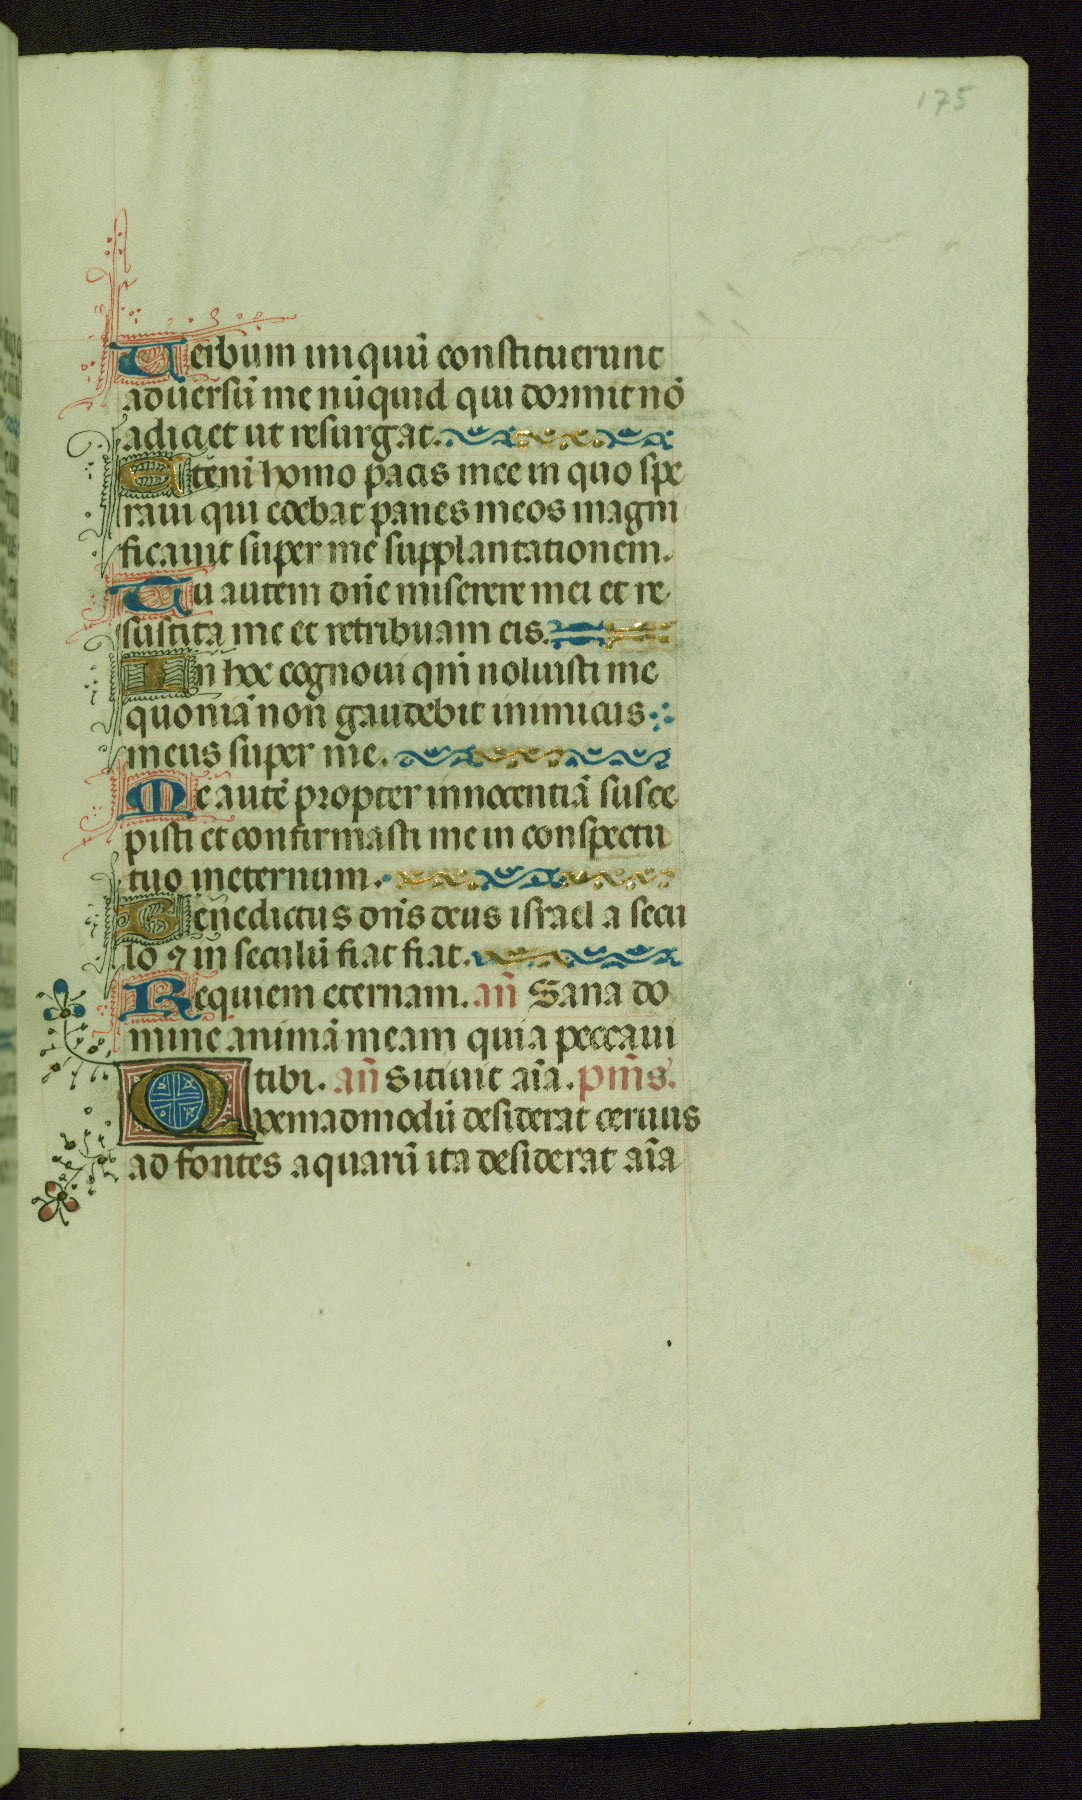 175
Uerbum iniquū constituerunt
aduersū me nūquid qui dormit nō
adiciet ut resurgat.
Etenī homo pacis mee in quo spe
raui qui edebat panes meos magni
ficauit super me supplantationem.
Tu autem dn̄e miserere mei et re
suscita me et retribuam eis.
In hoc cognoui qm̄ noluisti me
quoniā non gaudebit inimicus
meus super me.
Me autē propter innocentiā susce
pisti et confirmasti me in conspectu
tuo in eternum.
Benedictus dn̄s deus israel a secu
lo ⁊ in seculū fiat fiat.
Requiem eternam. an̄ Sana do
mine animā meam quia peccaui
tibi. an̄ Sitiuit aīa. pm̄s.
Quemadmodū desiderat ceruus
ad fontes aquarū ita desiderat aīa